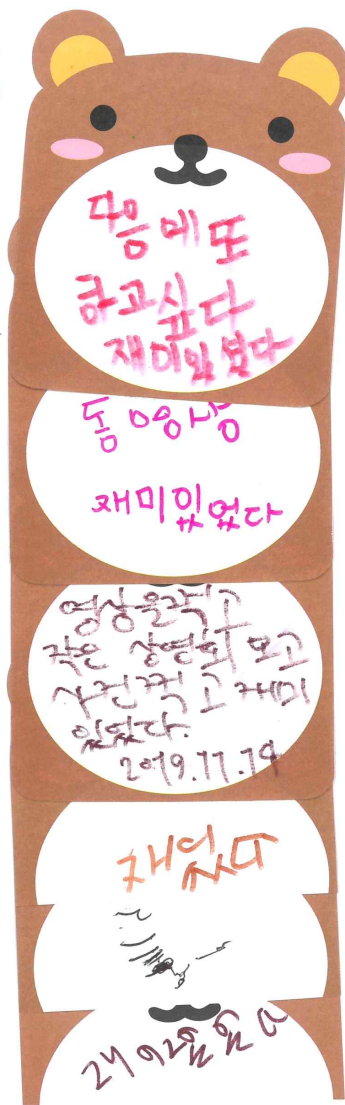 다음에 또
하고싶다
재미있었다
동영상
재미있었다
영상을 찍고
작은 상영회 보고
사진찍고 재미
있었다.
2019.11.14
재있다